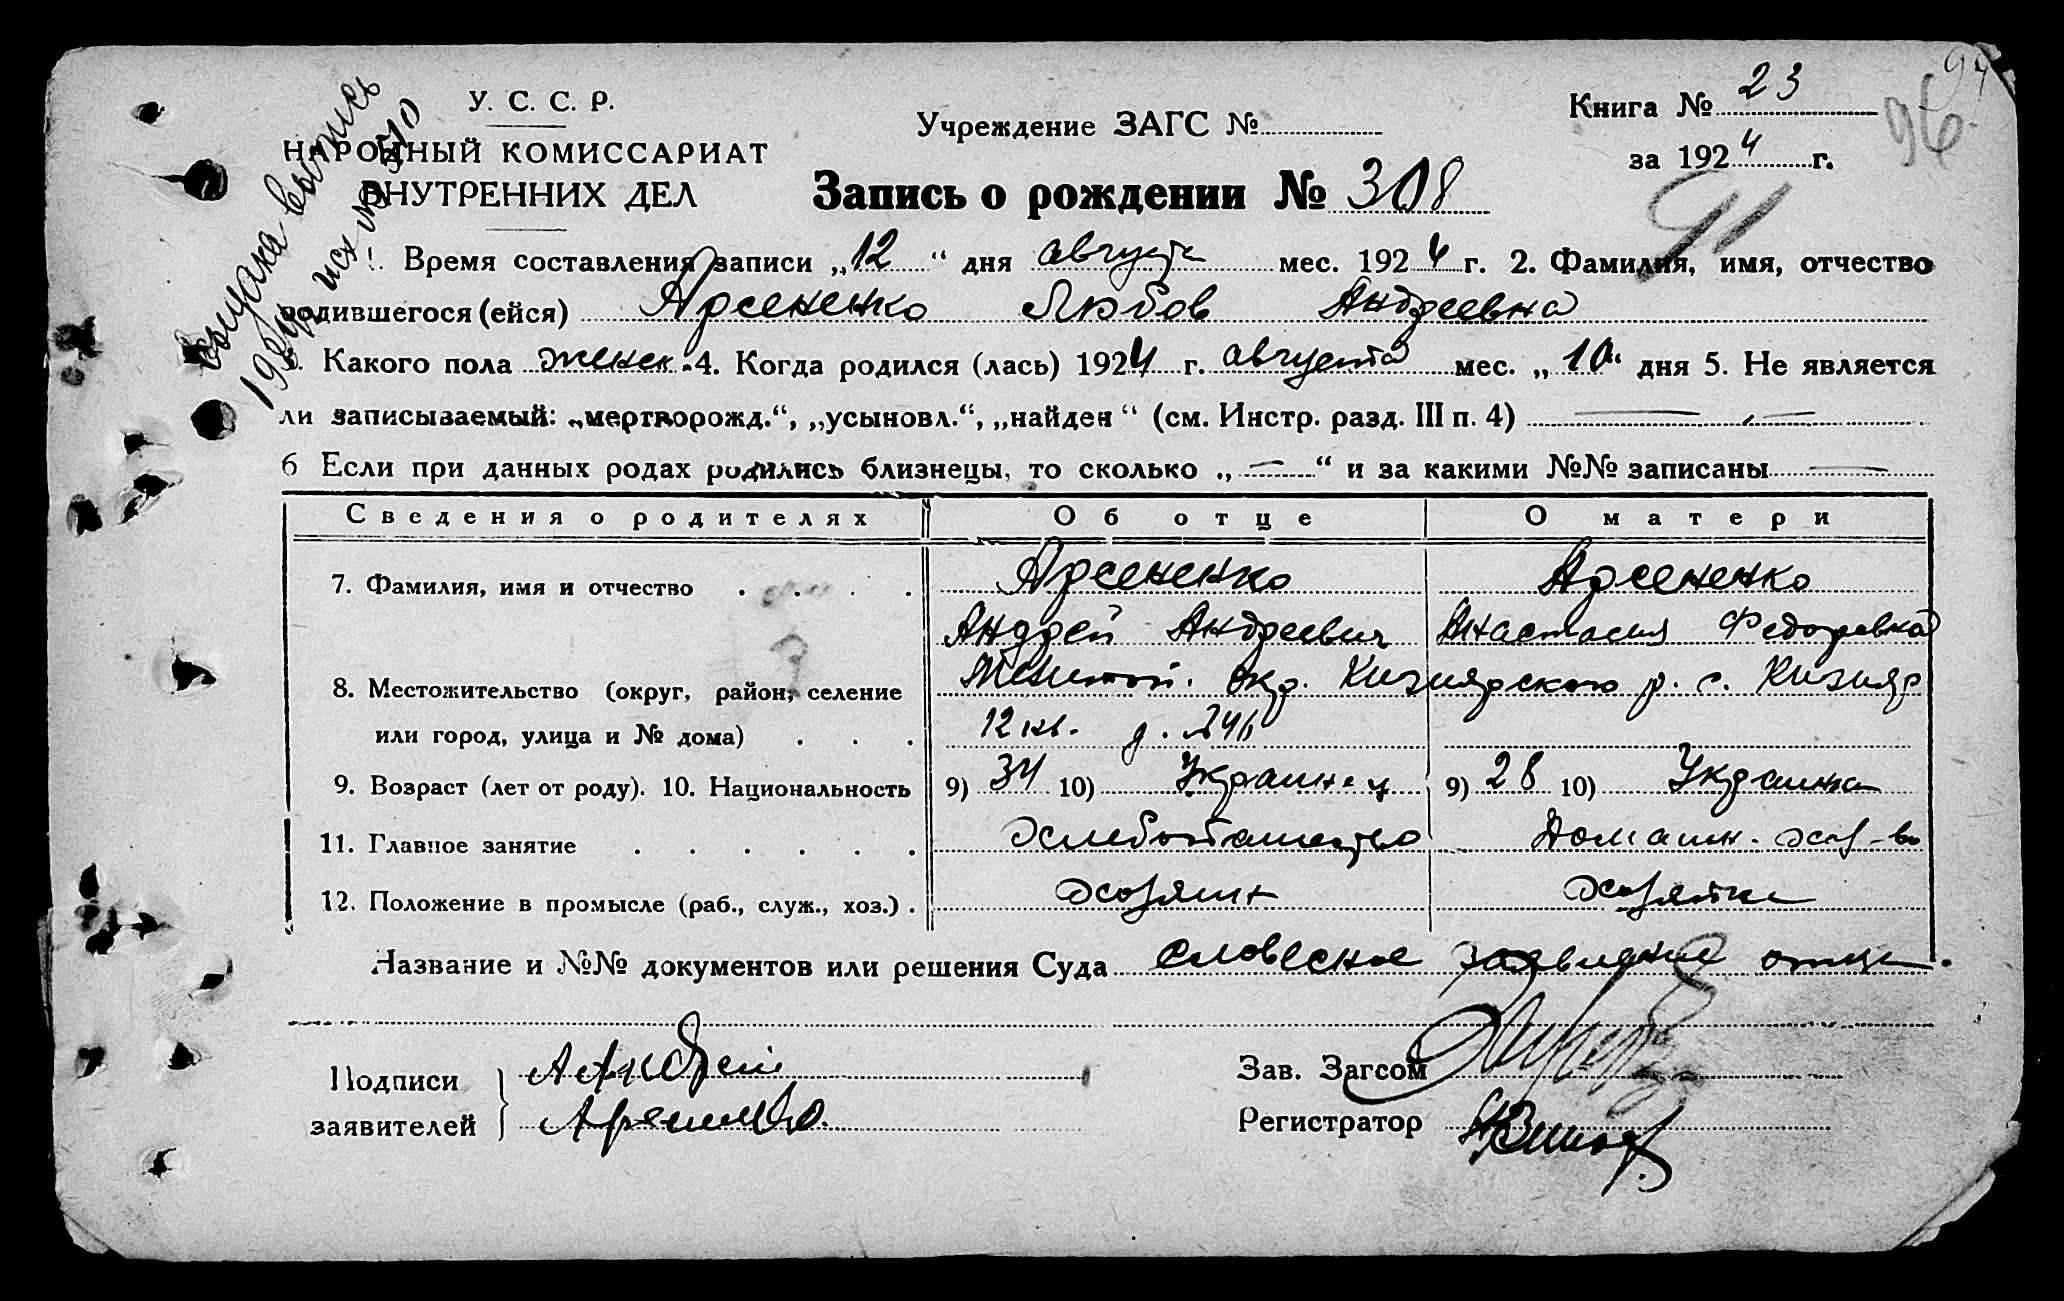 У. С. С. Р.
НАРОДНЫЙ КОМИССАРИАТ
ВНУТРЕННИХ ДЕЛ
Учреждение ЗАГС №
Книга № 23
за 1924 г.
94
96
91
Запись о рождении № 308
выдана выпись
1. Время составления записи „12“ дня августа мес. 1924 г. 2. Фамилия, имя, отчество
родившегося (ейся) Арсененко Любов Андреевна
3. Какого пола женск. 4. Когда родился (лась) 1924 г. августа мес. „10“ дня 5. Не является
ли записываемый: „мертворожд.“, „усыновл.“, „найден“ (см. Инстр. разд. III п. 4) —
6 Если при данных родах родились близнецы, то сколько „—“ и за какими №№ записаны —
Сведения о родителях Об отце О матери
7. Фамилия, имя и отчество Арсененко Арсененко
Андрей Андреевич Анастасия Федоровна
8. Местожительство (округ, район, селение Мелитоп. окр. Кизиярского р. с. Кизияр
или город, улица и № дома) 12 кв. д. 246
9. Возраст (лет от роду). 10. Национальность 9) 34 10) Украинец 9) 28 10) Украинка
11. Главное занятие Хлебопашество Домашн. хоз-во
12. Положение в промысле (раб., служ., хоз.) хозяин хозяйка
Название и №№ документов или решения Суда словесное заявление отца.
Подписи Андрей
заявителей
Зав. Загсом
Регистратор